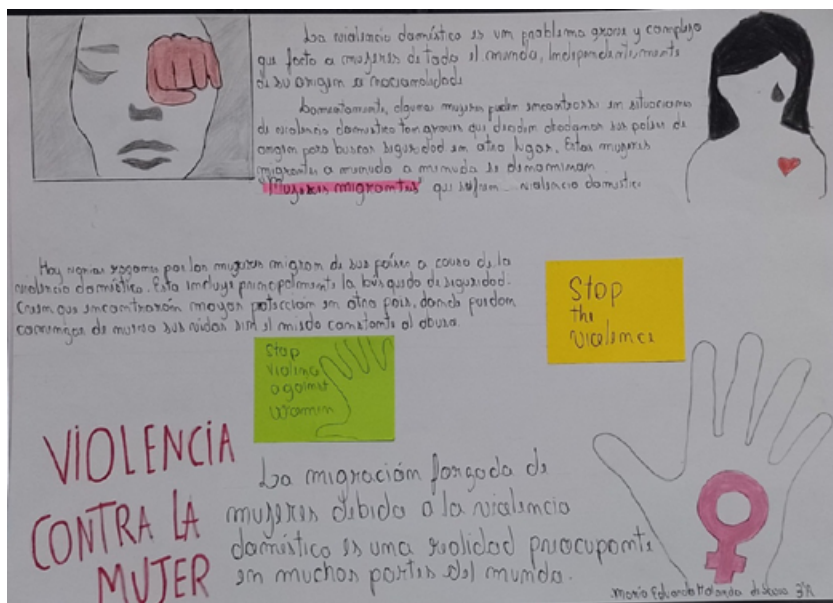 La violencia doméstica es um problema grave y complejo
que fecta a mujeres de todo el mundo, Independentemente
de su origem o nacionalidade
Lamentamente, algunas mujeres puden encontrarse em situaciones
de violencia domestica tan graves que deciden abadonar sus países de
origem para buscar seguridad em otro lugar. Estas mujeres
migrantes a menudo a menuda se denominan
"Mujeres migrantes" que sufrem violencia domestica
Hoy varias razones por las mujeres migram de sus países a causa de la
violencia doméstica. Esto incluye principalmente la búsqueda de seguridad.
Creem que encontrarám mayor protección em otro país, donde puedam
comenzar de nuevo sus vidas sin el miedo constante al abuso.
Stop
the
violence
Stop
violence
against
women
VIOLENCIA
CONTRA LA
MUJER
La migración forçada de
mujeres debido a la violencia
doméstica es una realidad preocupante
en muchos partes del mundo.
Maria Eduarda Holanda 3ºA